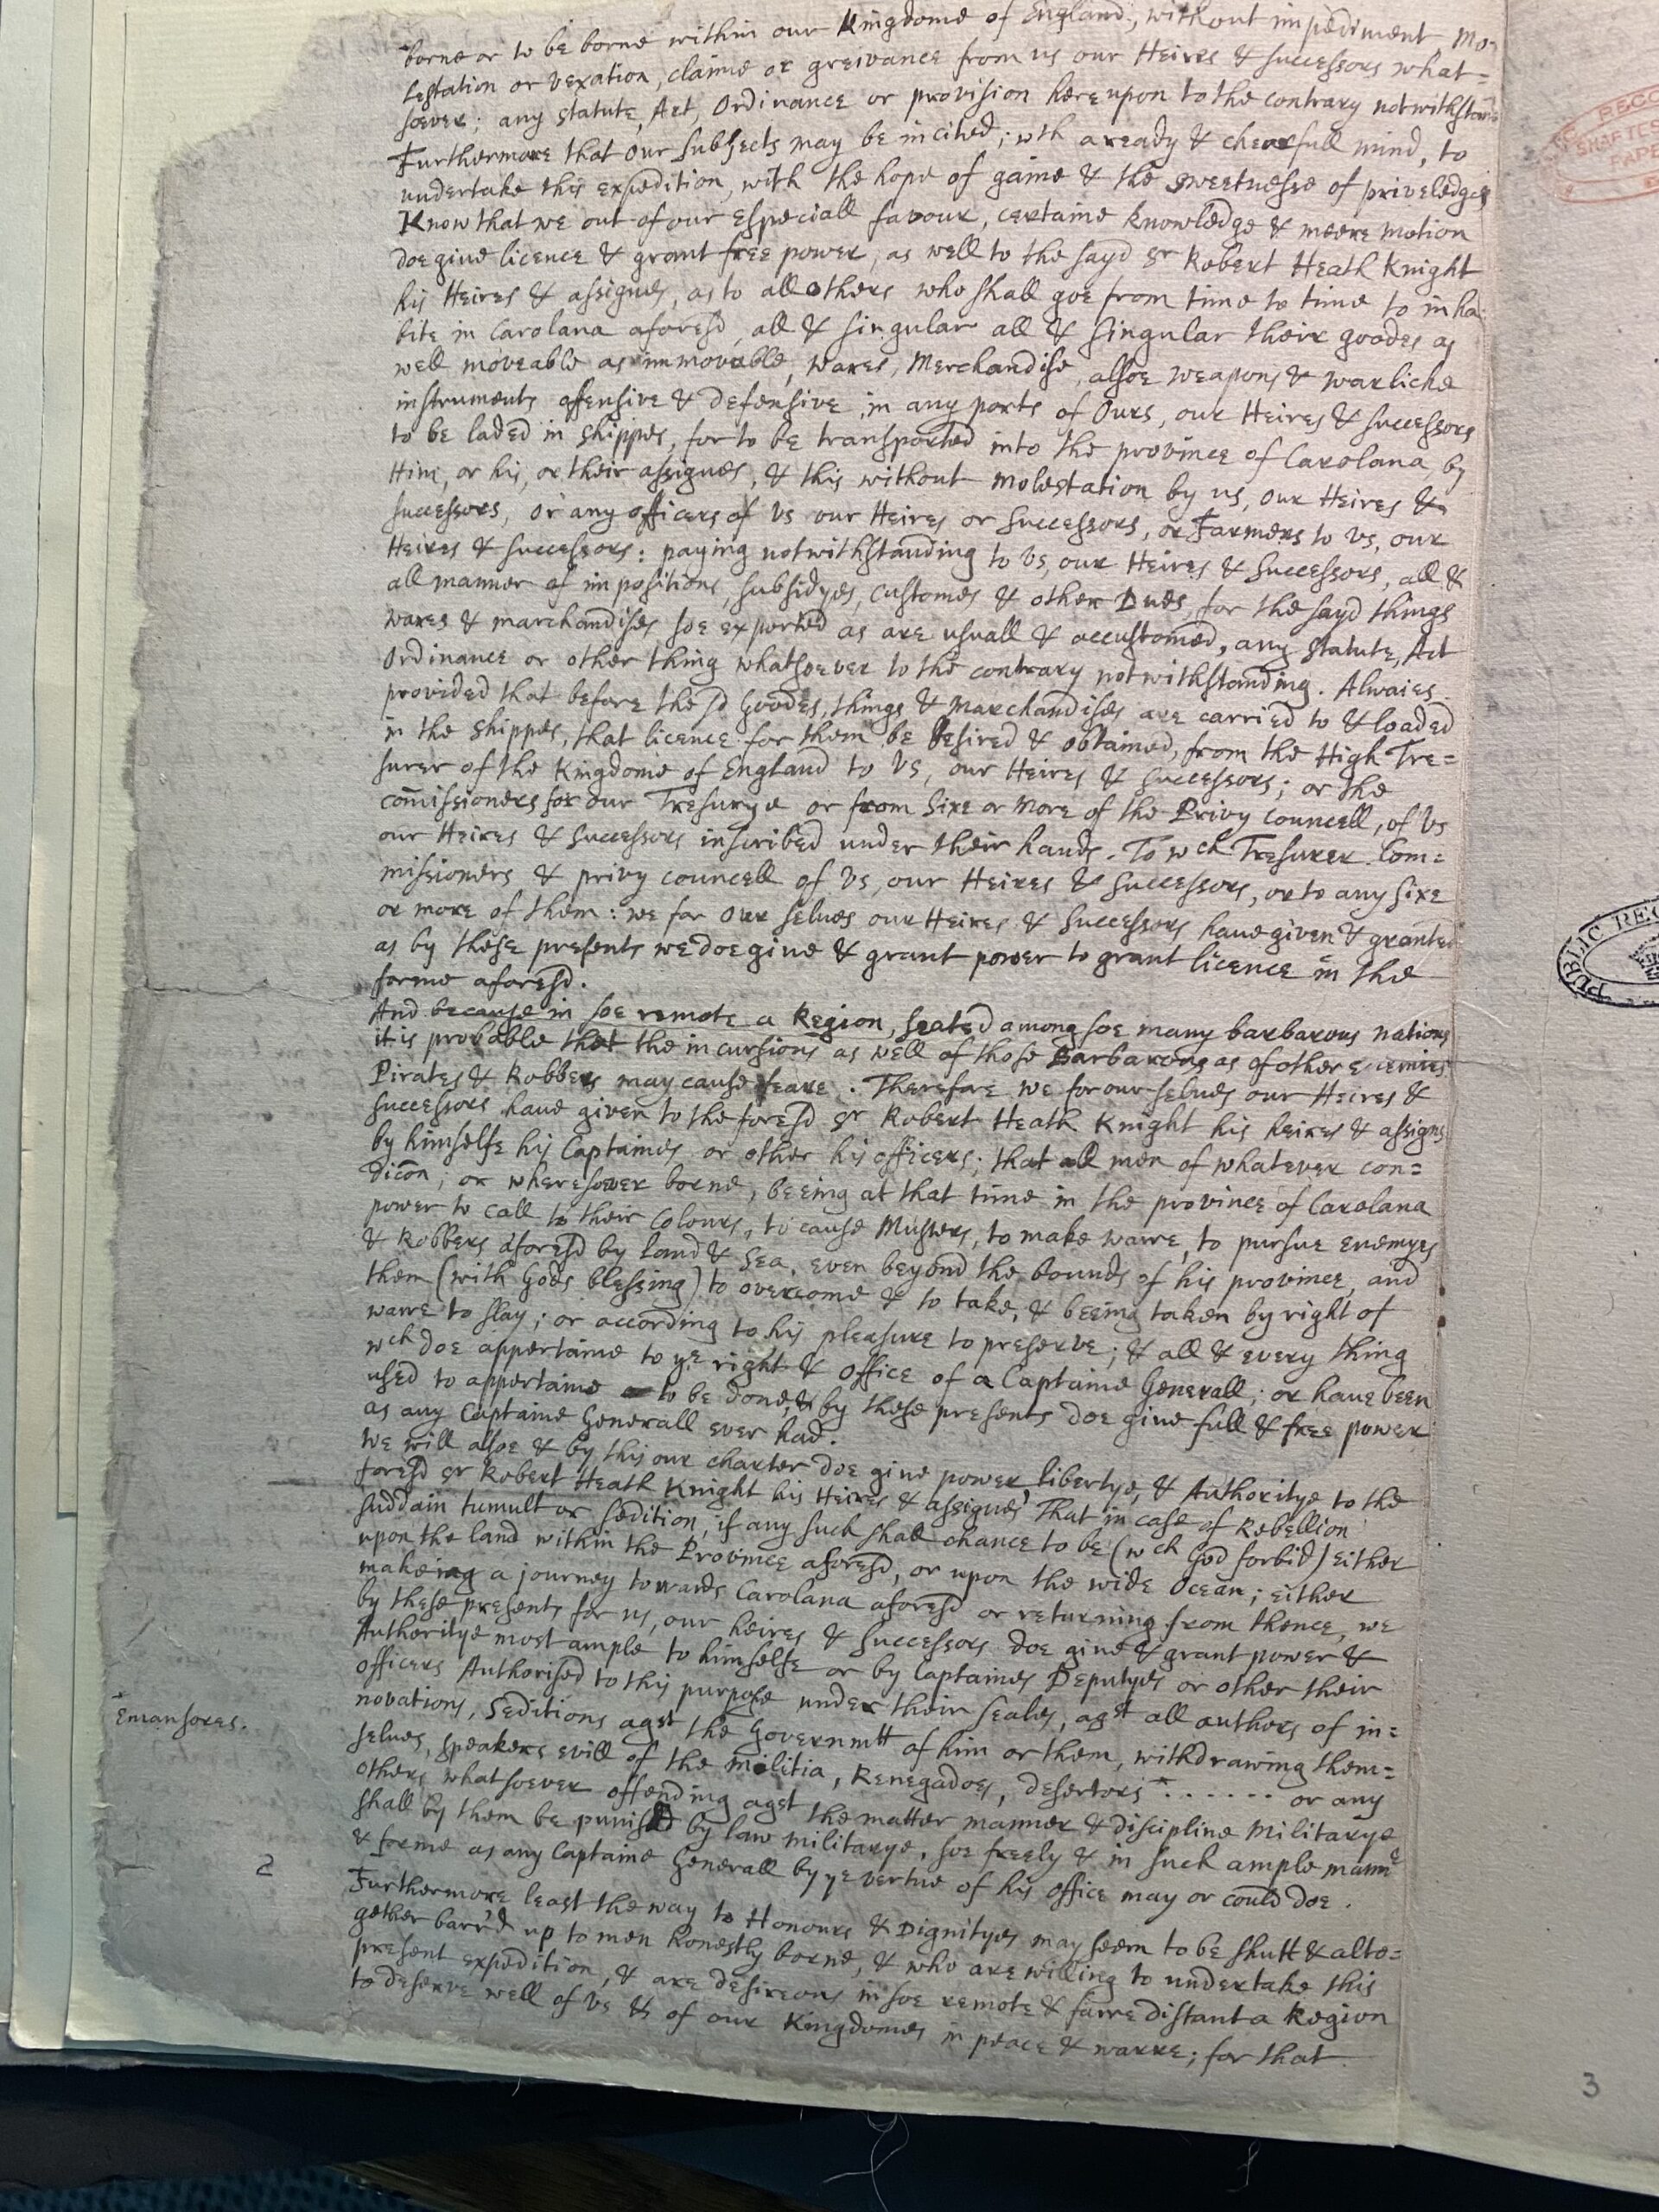 borne or to be borne within our Kingdome of England, without impediment Mo-
lestation or vexation, claime or greivance from us our Heires & successors what=
soever; any statute, Act, Ordinance or provision hereupon to the contrary notwithstan
Furthermore that our subjects may be incited; wth a ready & chearfull mind, to
undertake this expedition, with the hope of gaine & the sweetnesse of priveledges
Know that we out of our especiall favour, certaine knowledge & meere motion
doe give licence & grant free power, as well to the sayd Sr Robert Heath Knight
his Heires & assignes, as to all others who shall goe from time to time to inha
bite in Carolana aforesd, all & singular all & singular their goodes as
well moveable as immoveable, wares, Merchandise, alsoe weapons & warliche
instruments offensive & defensive in any ports of Ours, our Heires & successors
to be laded in shippes, for to be transported into the province of Carolana, by
Him, or his, or their assignes, & this without molestation by us, our Heires &
successors, or any officers of Vs our Heires or successors, or Farmers to Vs, our
Heires & successors: paying notwithstanding to Vs, our Heires & Successors, all &
all manner of impositions, subsidyes, customes & other Dues, for the sayd things
wares & marchandises soe exported as are usuall & accustomed, any statute, Act
Ordinance or other thing whatsoever to the contrary notwithstanding. Alwaies
provided that before the sd Goodes, things & Marchandises are carried to & loaded
in the shippes, that licence for them be desired & obtained, from the High Tre=
surer of the Kingdome of England to Vs, our Heires & successors; or the
comissioners for our Tresurye or from Sixe or more of the Privy councell, of Vs
our Heires & successors inscribed under their hands. To wch Tresurer Com=
missioners & privy councell of Vs, our Heires & successors, or to any sixe
or more of them: we for our selves our Heires & Successors have given & granted
as by these presents we doe give & grant power to grant licence in the
forme aforesd.
And because in soe remote a Region, seated among soe many barbarous nations
it is probable that the incursions as well of those Barbarous as of other enemies
Pirates & Robbers may cause feare. Therefore we for our selves our Heires &
successors have given to the foresd Sr Robert Heath Knight his heires & assigns
by himselfe his Captaines or other his officers; that all men of whatever con=
dicon, or wheresoever borne, beeing at that time in the province of Carolana
power to call to their Colours, to cause Musters, to make warre, to pursue enemyes
& Robbers aforesd by land & Sea, even beyond the bounds of his province, and
them (with Gods blessing) to overcome & to take, & beeing taken by right of
warre to slay; or according to his pleasure to preserve; & all & every thing
wch doe appertaine to ye right & office of a Captaine Generall; or have been
used to appertaine to be done, & by these presents doe give full & free power
as any Captaine Generall ever had.
We will alsoe & by this our charter doe give power, libertye, & Authoritye to the
foresd Sr Robert Heath Knight his Heires & assignes That in case of Rebellion
suddain tumult or sedition, if any such shall chance to be (wch God forbid) either
upon the land within the Province aforesd, or upon the wide Ocean; either
makeing a journey towards Carolana aforesd or returning from thence, we
by these presents for us, our heires & successors doe give & grant power &
Authoritye most ample to himselfe or by Captaines Deputyes or other their
officers Authorised to this purpose under their seales, agst all authors of in=
novations, Seditions agst the Governmtt of him or them, withdrawing them=
* Emansores.
selves, speakers evill of the militia, Renegadoes, desertors * . . . . . . or any
others whatsoever offending agst the matter manner & discipline Militarye
shall by them be punished by law militarye, soe freely & in such ample manne
2
& forme as any Captaine Generall by ye vertue of his office may or could doe.
Furthermore least the way to Honours & Dignityes may seem to be shutt & alto=
gether barr'd up to men honestly borne, & who are willing to undertake this
present expedition, & are desireous in soe remote & farre distant a Region
to deserve well of Vs & of our Kingdomes in peace & warre; for that
3
PUBLIC REC
RECO
SHAFTES
PAPE